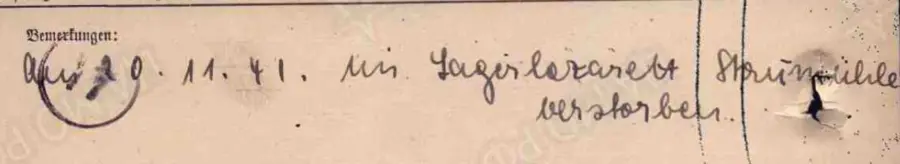 Bemerkungen:
Am 20.11.41. im Lagerlazarett Staumühle
verstorben.